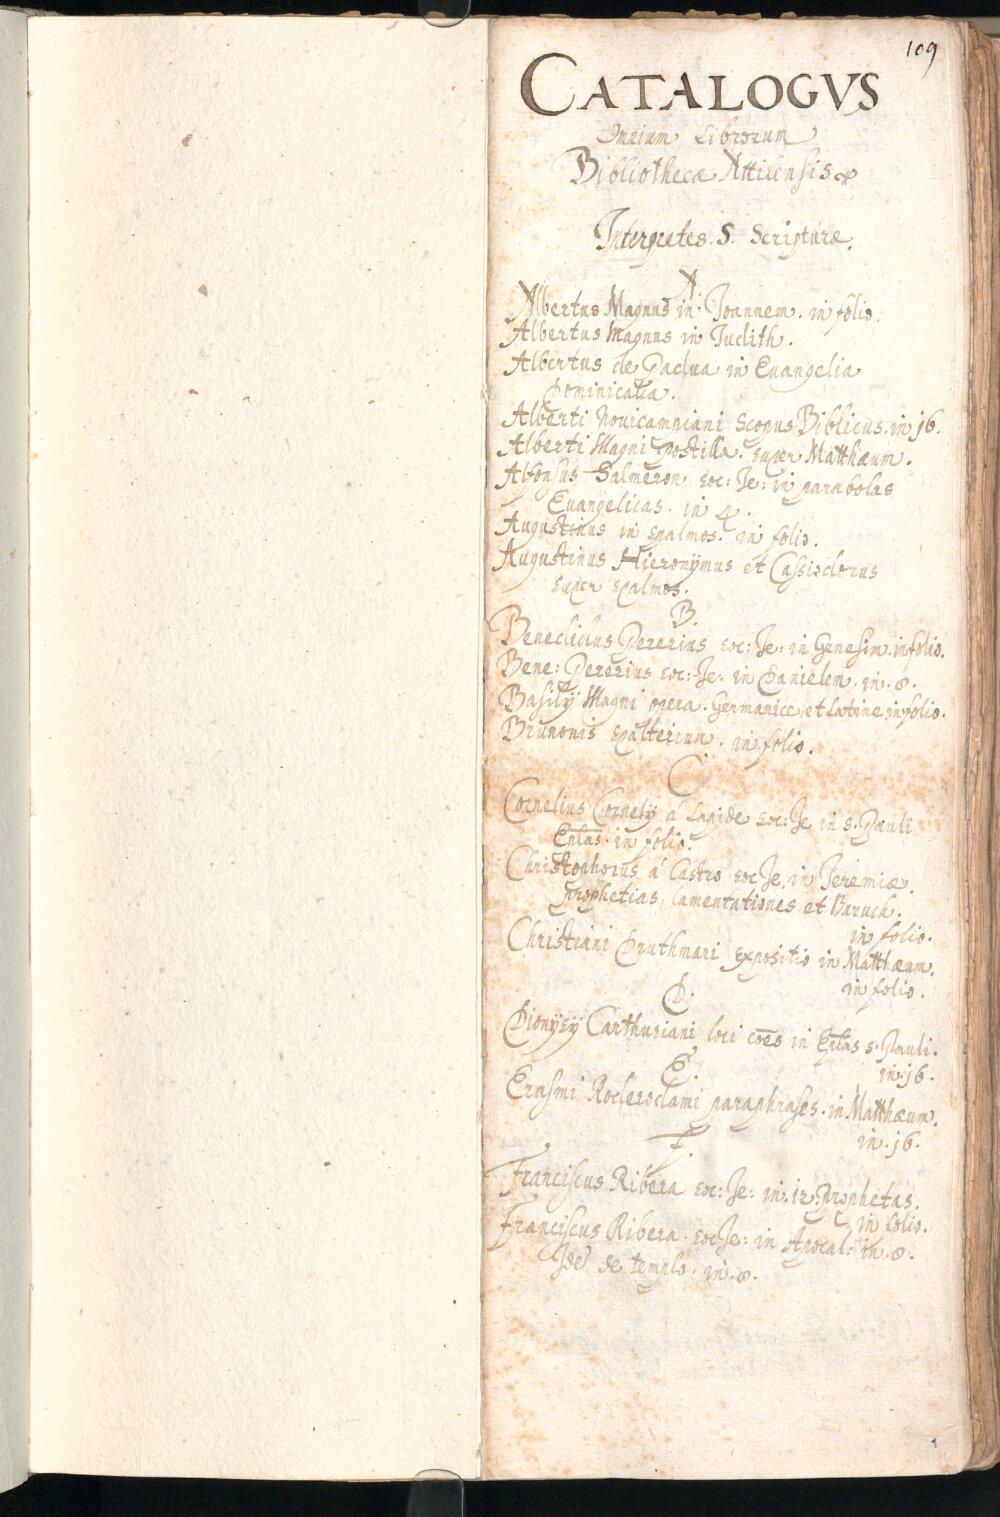 109
CATALOGVS
Omnium Librorum
Bibliothecæ Attilensis
Interpretes S. Scripturæ.
A
Albertus Magnus in Joannem. in folio.
Albertus Magnus in Judith.
Albertus de Padua in Euangelia
Dominicalia.
Alberti Nouicampiani Scopus Biblicus. in j6.
Alberti Magni postilla. super Matthæum.
Alfonsus Salmeron soc: Je: in parabolas
Euangelicas. in 4.
Augustinus in psalmos. in folio.
Augustinus Hieronymus et Cassiodorus
super psalmos.
B
Benedictus Pererius soc: Je: in Genesim. in folio.
Bene: Pererius soc: Je: in Danielem. in. 8.
Basilij Magni opera. Germanice, et Latine, in folio.
Brunonis psalterium. in folio.
C
Cornelius Cornelij á Lapide soc: Je in s. Pauli
Epĺas. in folio.
Christophorus á Castro soc Je. in Jeremiæ.
prophetias, lamentationes et Baruch.
in folio.
Christiani Druthmari expositio in Matthæum.
in folio.
D.
Dionysij Carthusiani loci cōes in Epĺas s. Pauli.
in. j6.
E.
Erasmi Roderodami paraphrases. in Matthæum.
in. j6.
F.
Franciscus Ribera soc: Je: in. 12. prophetas.
in folio.
Franciscus Ribera. soc Je: in Apocal: in. 8.
de templo. in. 8.